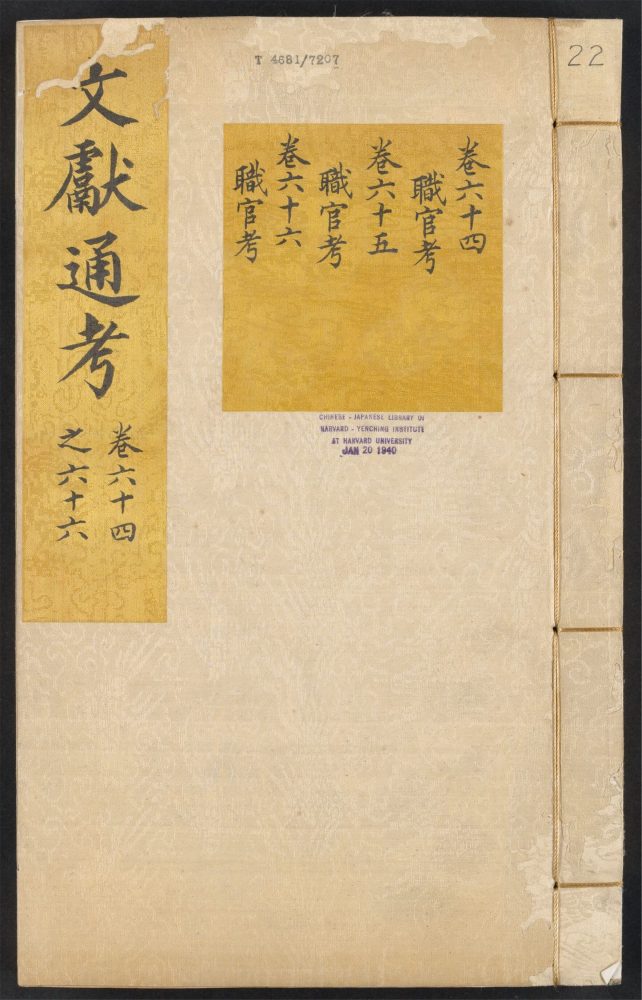 T 4681/7207
22
文獻通考
卷六十四
之六十六
卷六十四
職官考
卷六十五
職官考
卷六十六
職官考
CHINESE - JAPANESE LIBRARY OF
HARVARD - YENCHING INSTITUTE
AT HARVARD UNIVERSITY
JAN 20 1940